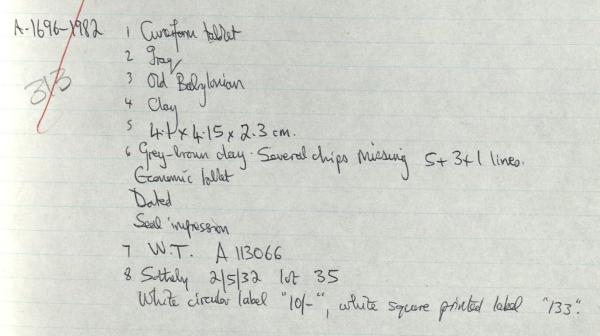 A-1696-1982 1 Cuneiform tablet
313
2 Iraq
3 Old Babylonian
4 Clay
5 4.1 x 4.15 x 2.3 cm.
6 Grey-brown clay. Several chips missing 5+3+1 lines.
Economic tablet
Dated
Seal impression
7 W.T. A 113066
8 Sotheby 2/5/32 lot 35
White circular label "10/-", white square printed label "133".